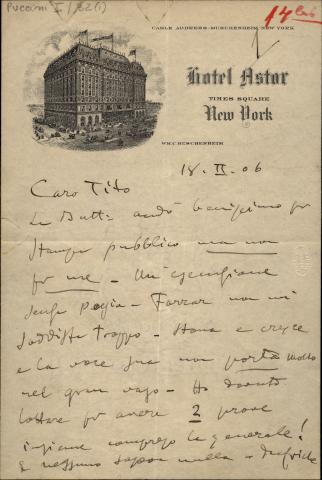 Puccini I/22(1)
14 bis
CABLE ADDRESS-MUSCHENHEIM NEW YORK
Hotel Astor
TIMES SQUARE
New York
WM.C.MUSCHENHEIM
18. II. 06
Caro Tito
La Butt. andò benissimo per
stampa pubblico ma non
per me - Un'esecuzione
senza poesia - Farrar non mi
soddisfa troppo - stona e
e la voce sua non porta molto
nel gran vaso - Ho dovuto
lottare per avere 2 prove
insieme compreso la generale!
E nessuno sapeva nulla -